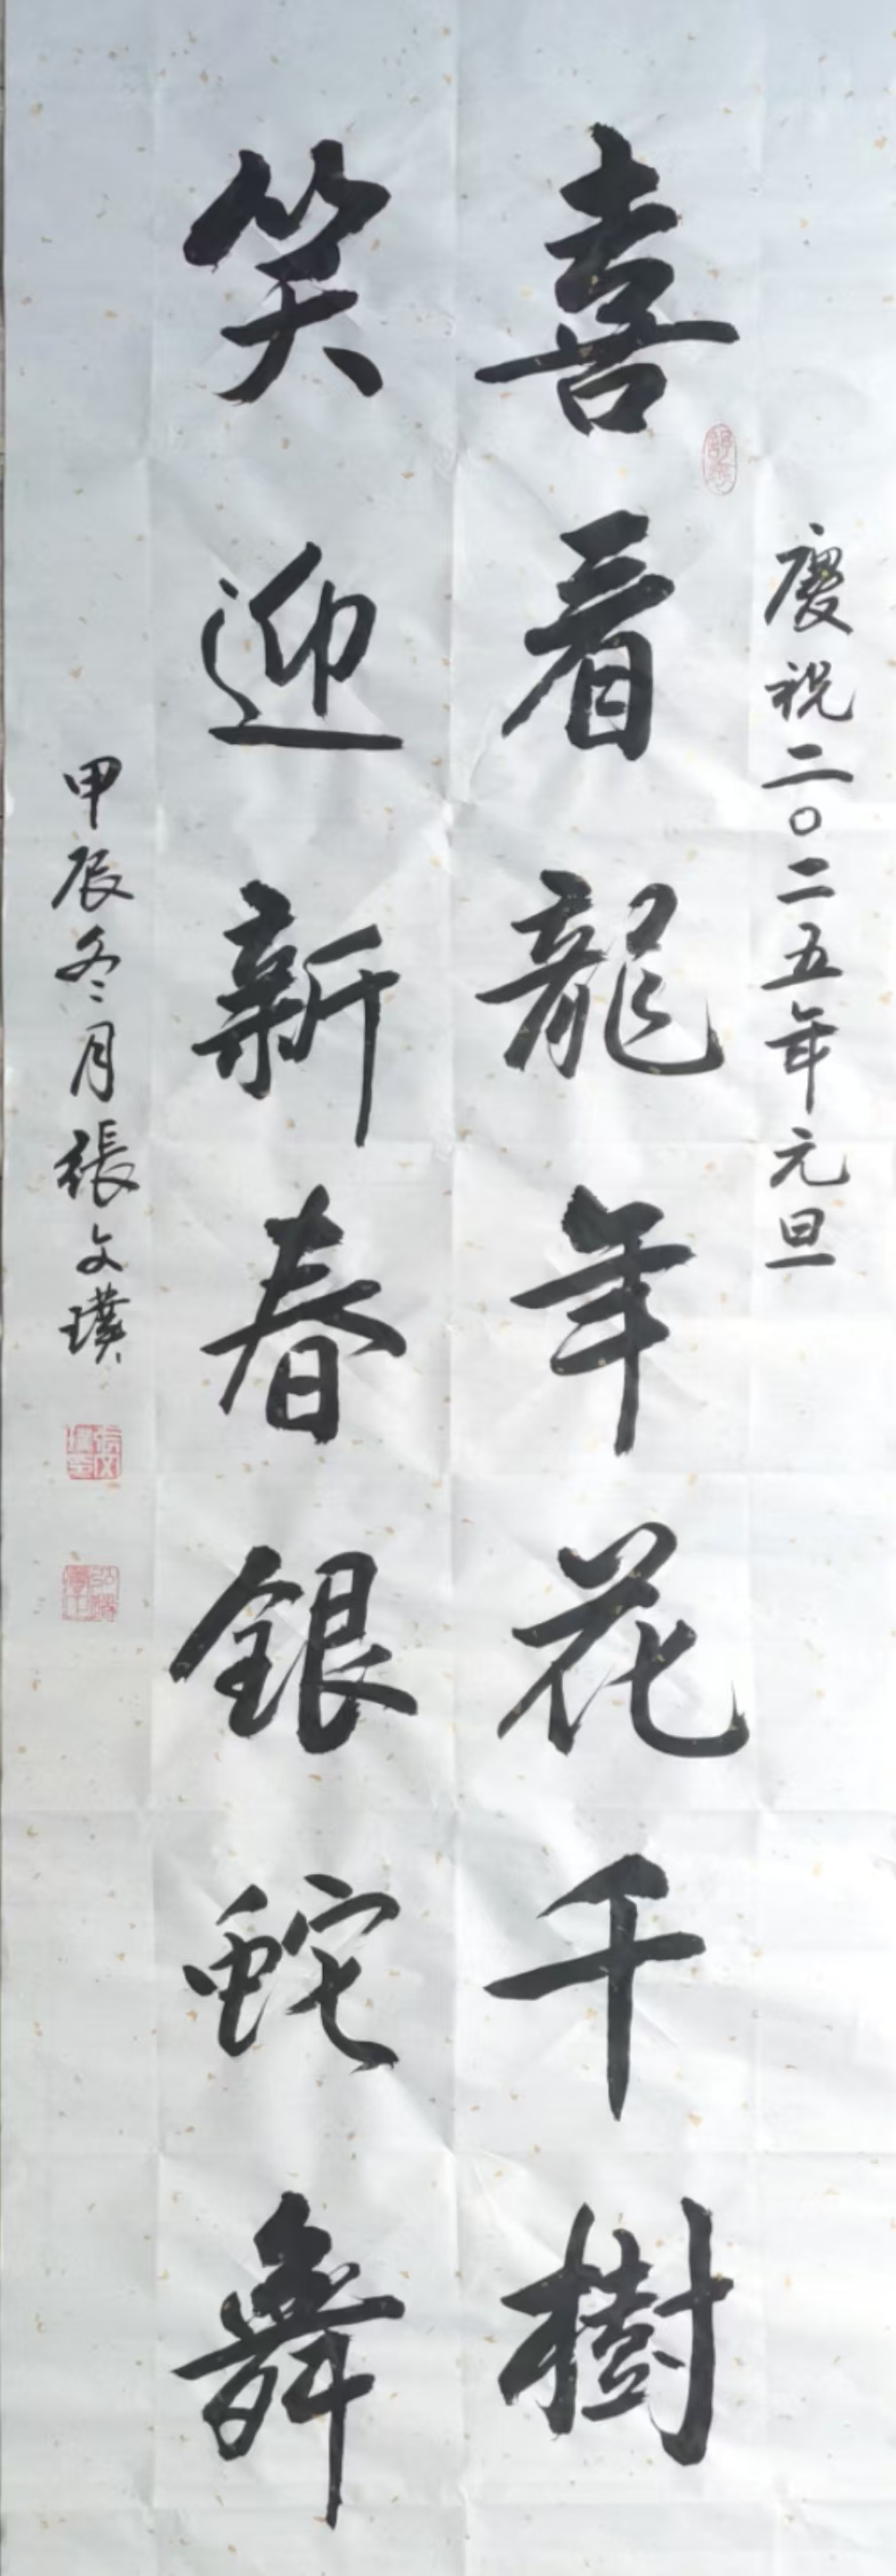 慶祝二〇二五年元旦
喜看龍年花千樹
笑迎新春銀蛇舞
甲辰冬月張文璞